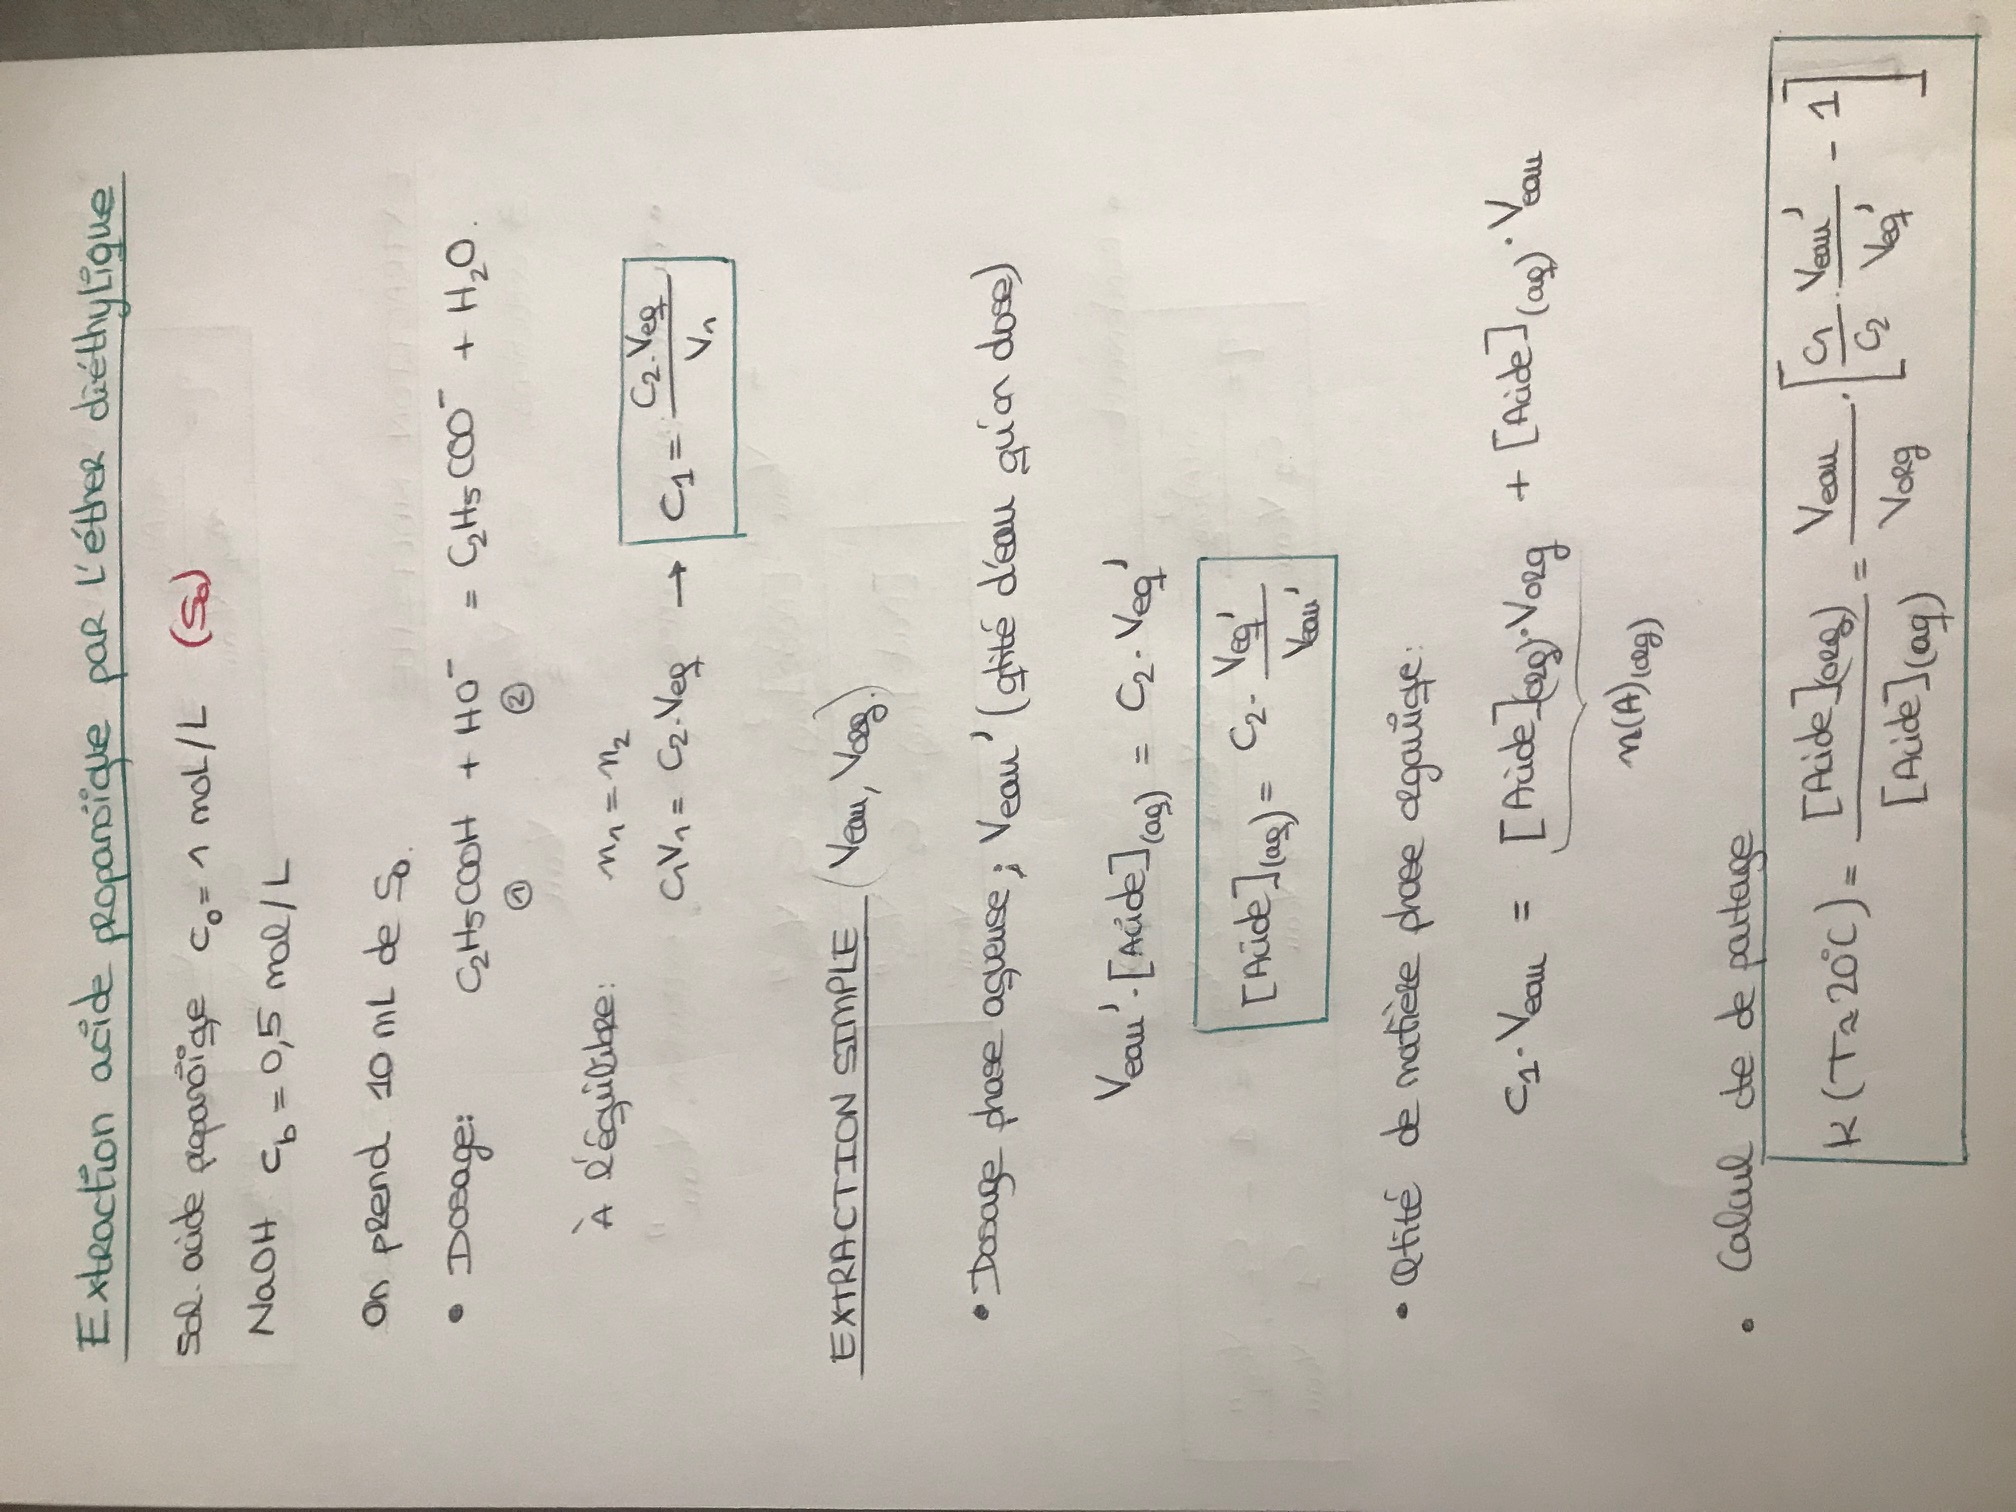 Extraction acide propanoïque par l'éther diéthylique
Sol. acide propanoïqe c₀ = 1 mol/L (S₀)
NaOH c_b = 0,5 mol/L
On prend 10 mL de S₀.
• Dosage: C₂H₅COOH + HO⁻ = C₂H₅COO⁻ + H₂O.
① ②
À l'équilibre: n₁ = n₂
C₁V₁ = C₂.Veq → C₁ = C₂.Veq / V₁
EXTRACTION SIMPLE (Veau, Vorg.)
• Dosage phase aqueuse ; Veau' (qtité d'eau qu'on dose)
Veau'.[Acide](aq) = C₂.Veq'
[Acide](aq) = C₂. Veq' / Veau'
• Qtité de matière phase organiqe:
C₁.Veau = [Acide](org).Vorg + [Acide](aq).Veau
n(A)(org)
• Calcul cte de partage
K(T≈20°C) = [Acide](org) / [Acide](aq) = Veau / Vorg . [C₁ / C₂ . Veau' / Veq' - 1]